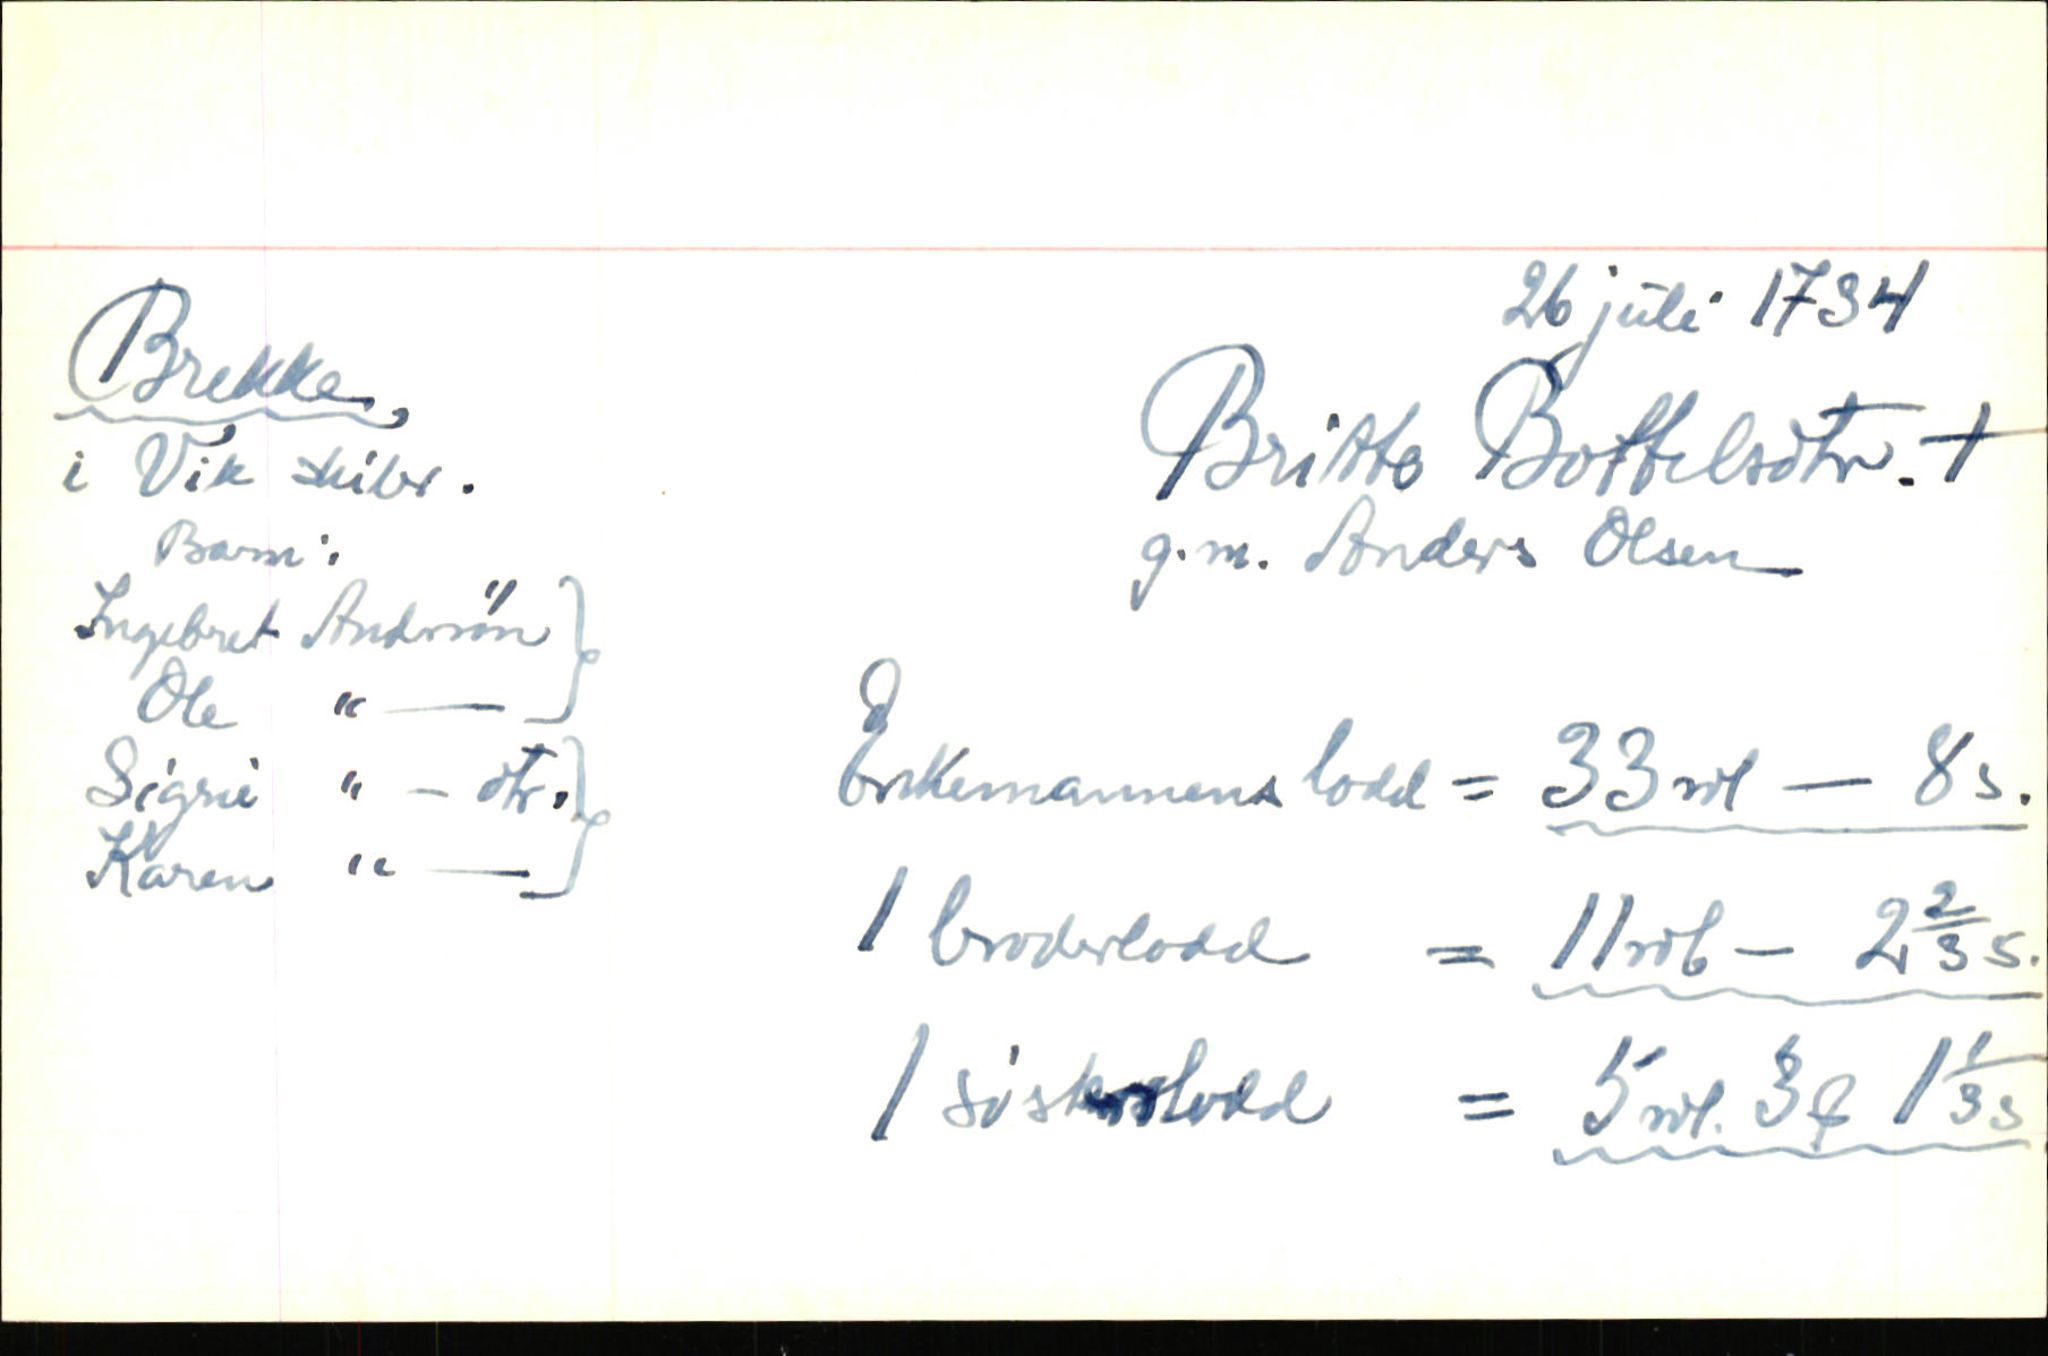 26 juli 1734
Brekke,
i Vik skibr.
Britte Bottelsdtr. +
g.m. Anders Olsen
Barn:
Ingebret Andersøn
Ole " —
Sigrii " - dtr.
Karen " —
Enkemannens lodd = 33 rdl — 8 s.
1 broderlodd = 11 rdl — 2 2/3 s.
1 søsterlodd = 5 rdl. 3 1 1/3 s